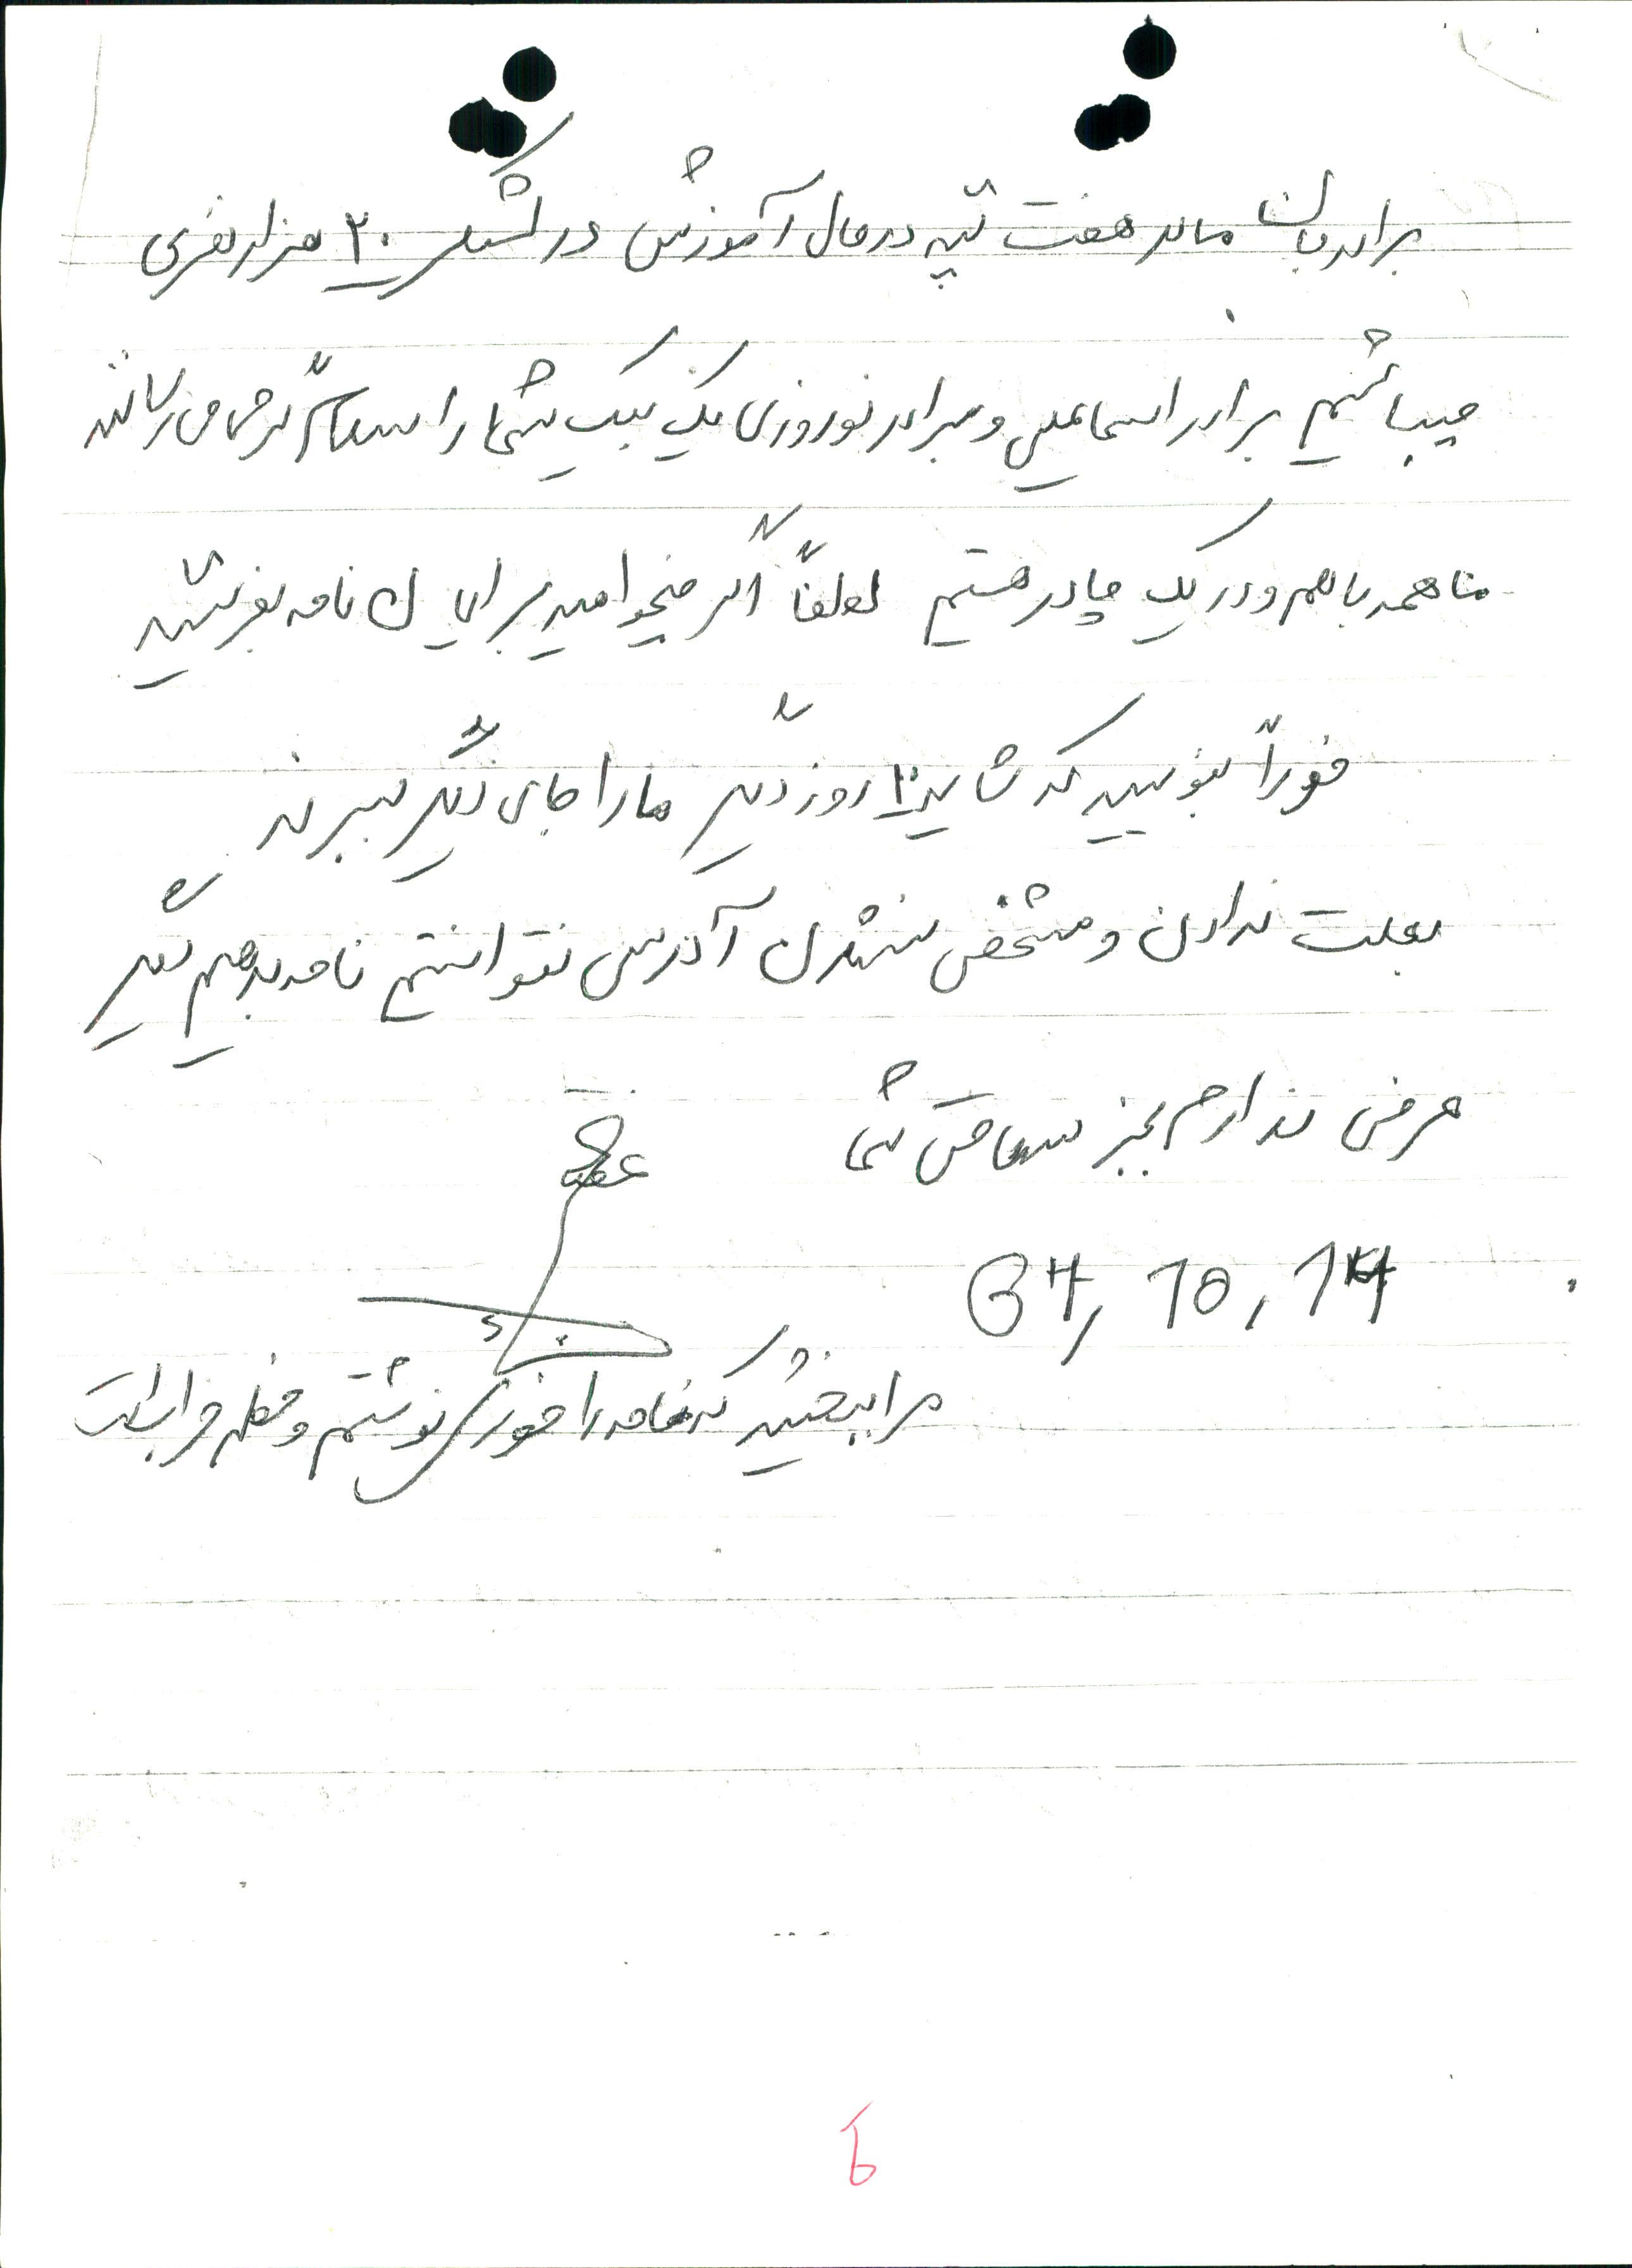 برادرجان ما در هفت تپه در حال آموزش در لشکر ۲۰ هزار نفری
میباشیم برادر اسماعیلی و برادر نوروزی یک یک شما را سلام گرم می رسانند
ما همه با هم و در یک چادر هستیم لطفاً اگر میخواهید برایمان نامه بفرستید
فوراً بنویسید که شاید ۱۰ روز دیگر ما را جای دیگر ببرند
بعلت ندادن و مشخص نشدن آدرس نتوانستم نامه بدهم دیگر
عرضی ندارم بجز سلامتی شما
64, 10, 14
مرا ببخشید که نامه را فوری نوشتم و خطم خراب است
6